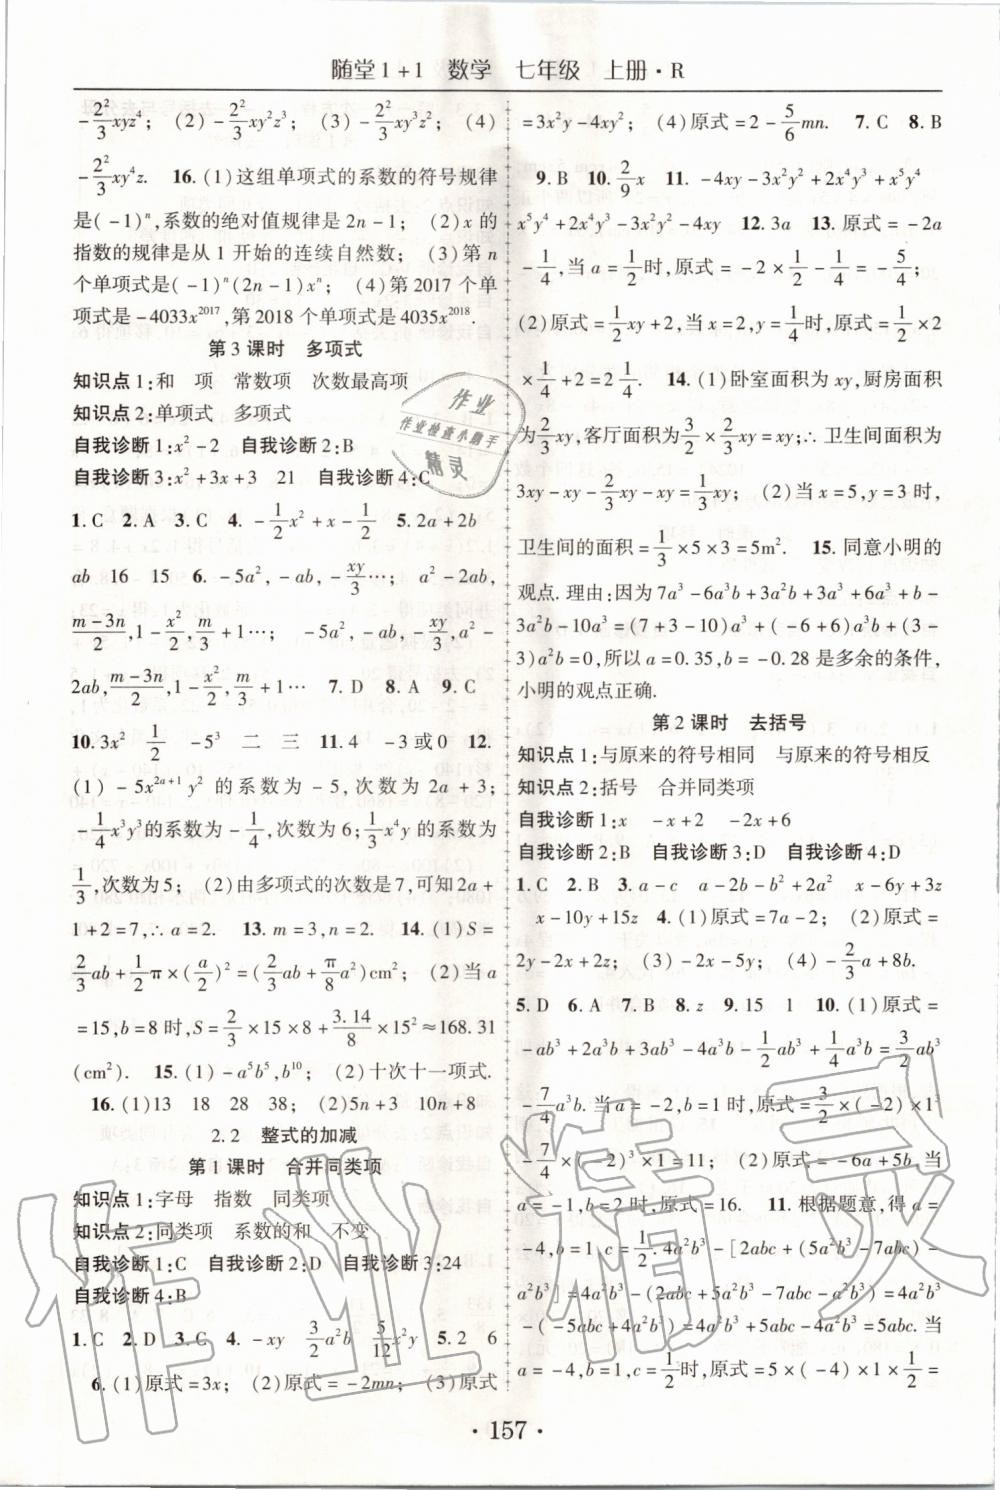 随堂1+1 数学 七年级 上册·R
-2²/3xyz⁴; (2)-2²/3xy²z³; (3)-2²/3xy³z²; (4)
-2²/3xy⁴z. 16.(1)这组单项式的系数的符号规律
是(-1)ⁿ,系数的绝对值规律是2n-1; (2)x的
指数的规律是从1开始的连续自然数; (3)第n
个单项式是(-1)ⁿ(2n-1)xⁿ; (4)第2017个单
项式是-4033x²⁰¹⁷,第2018个单项式是4035x²⁰¹⁸.
第3课时 多项式
知识点1:和 项 常数项 次数最高项
知识点2:单项式 多项式
自我诊断1:x²-2 自我诊断2:B
自我诊断3:x²+3x+3 21 自我诊断4:C
1.C 2.A 3.C 4.-1/2x²+x-1/2 5.2a+2b
ab 16 15 6.-5a²,-ab,-xy/3…; a²-2ab,
(m-3n)/2,1-x²/2,m/3+1…; -5a²,-ab,-xy/3,a²-
2ab,(m-3n)/2,1-x²/2,m/3+1… 7.D 8.A 9.C
10.3x² 1/2 -5³ 二 三 11.4 -3或0 12.
(1)-5x²ᵃ⁺¹y²的系数为-5,次数为2a+3;
-1/4x³y³的系数为-1/4,次数为6;1/3x⁴y的系数为
1/3,次数为5; (2)由多项式的次数是7,可知2a+
1+2=7,∴a=2. 13.m=3,n=2. 14.(1)S=
2/3ab+1/2π×(a/2)²=(2/3ab+π/8a²)cm²; (2)当a
=15,b=8时,S=2/3×15×8+3.14/8×15²≈168.31
(cm²). 15.(1)-a⁵b⁵,b¹⁰; (2)十次十一项式.
16.(1)13 18 28 38; (2)5n+3 10n+8
2.2 整式的加减
第1课时 合并同类项
知识点1:字母 指数 同类项
知识点2:同类项 系数的和 不变
自我诊断1:C 自我诊断2:D 自我诊断3:24
自我诊断4:B
1.C 2.D 3.C 4.-xy 3/2a²b 5/12x²y 5.2 6
6.(1)原式=3x; (2)原式=-2mn; (3)原式
=3x²y-4xy²; (4)原式=2-5/6mn. 7.C 8.B
9.B 10.2/9x 11.-4xy-3x²y²+2x³y⁴+x⁵y⁴
x⁵y⁴+2x³y⁴-3x²y²-4xy 12.3a 13.原式=-2a
-1/4,当a=1/2时,原式=-2×1/2-1/4=-5/4;
(2)原式=1/2xy+2,当x=2,y=1/4时,原式=1/2×2
×1/4+2=2 1/4. 14.(1)卧室面积为xy,厨房面积
为2/3xy,客厅面积为3/2×2/3xy=xy;∴卫生间面积为
3xy-xy-2/3xy-xy=1/3xy; (2)当x=5,y=3时,
卫生间的面积=1/3×5×3=5m². 15.同意小明的
观点.理由:因为7a³-6a³b+3a²b+3a³+6a³+b-
3a²b-10a³=(7+3-10)a³+(-6+6)a³b+(3-
3)a²b=0,所以a=0.35,b=-0.28是多余的条件,
小明的观点正确.
第2课时 去括号
知识点1:与原来的符号相同 与原来的符号相反
知识点2:括号 合并同类项
自我诊断1:x -x+2 -2x+6
自我诊断2:B 自我诊断3:D 自我诊断4:D
1.C 2.B 3.a-c a-2b-b²+2a² x-6y+3z
x-10y+15z 4.(1)原式=7a-2; (2)原式=
2y-2x+2z; (3)-2x-5y; (4)-2/3a+8b.
5.D 6.A 7.B 8.z 9.15 1 10.(1)原式=
-ab³+2a³b+3ab³-4a³b-1/2ab³+1/4a³b=3/2ab³
-7/4a³b.当a=-2,b=1时,原式=3/2×(-2)×1³
-7/4×(-2)³×1=11; (2)原式=-6a+5b.当
a=-1,b=2时,原式=16. 11.根据题意,得a=
-4,b=1,c=1/2.4a²b³-[2abc+(5a²b³-7abc)-
a²b³]=4a²b³-(2abc+5a²b³-7abc-a²b³)=4a²b³
-(-5abc+4a²b³)=4a²b³+5abc-4a²b³=5abc.当
a=-4,b=1,c=1/2时,原式=5×(-4)×1×1/2=
·157·
作业
作业检查小助手
精灵
作业精灵